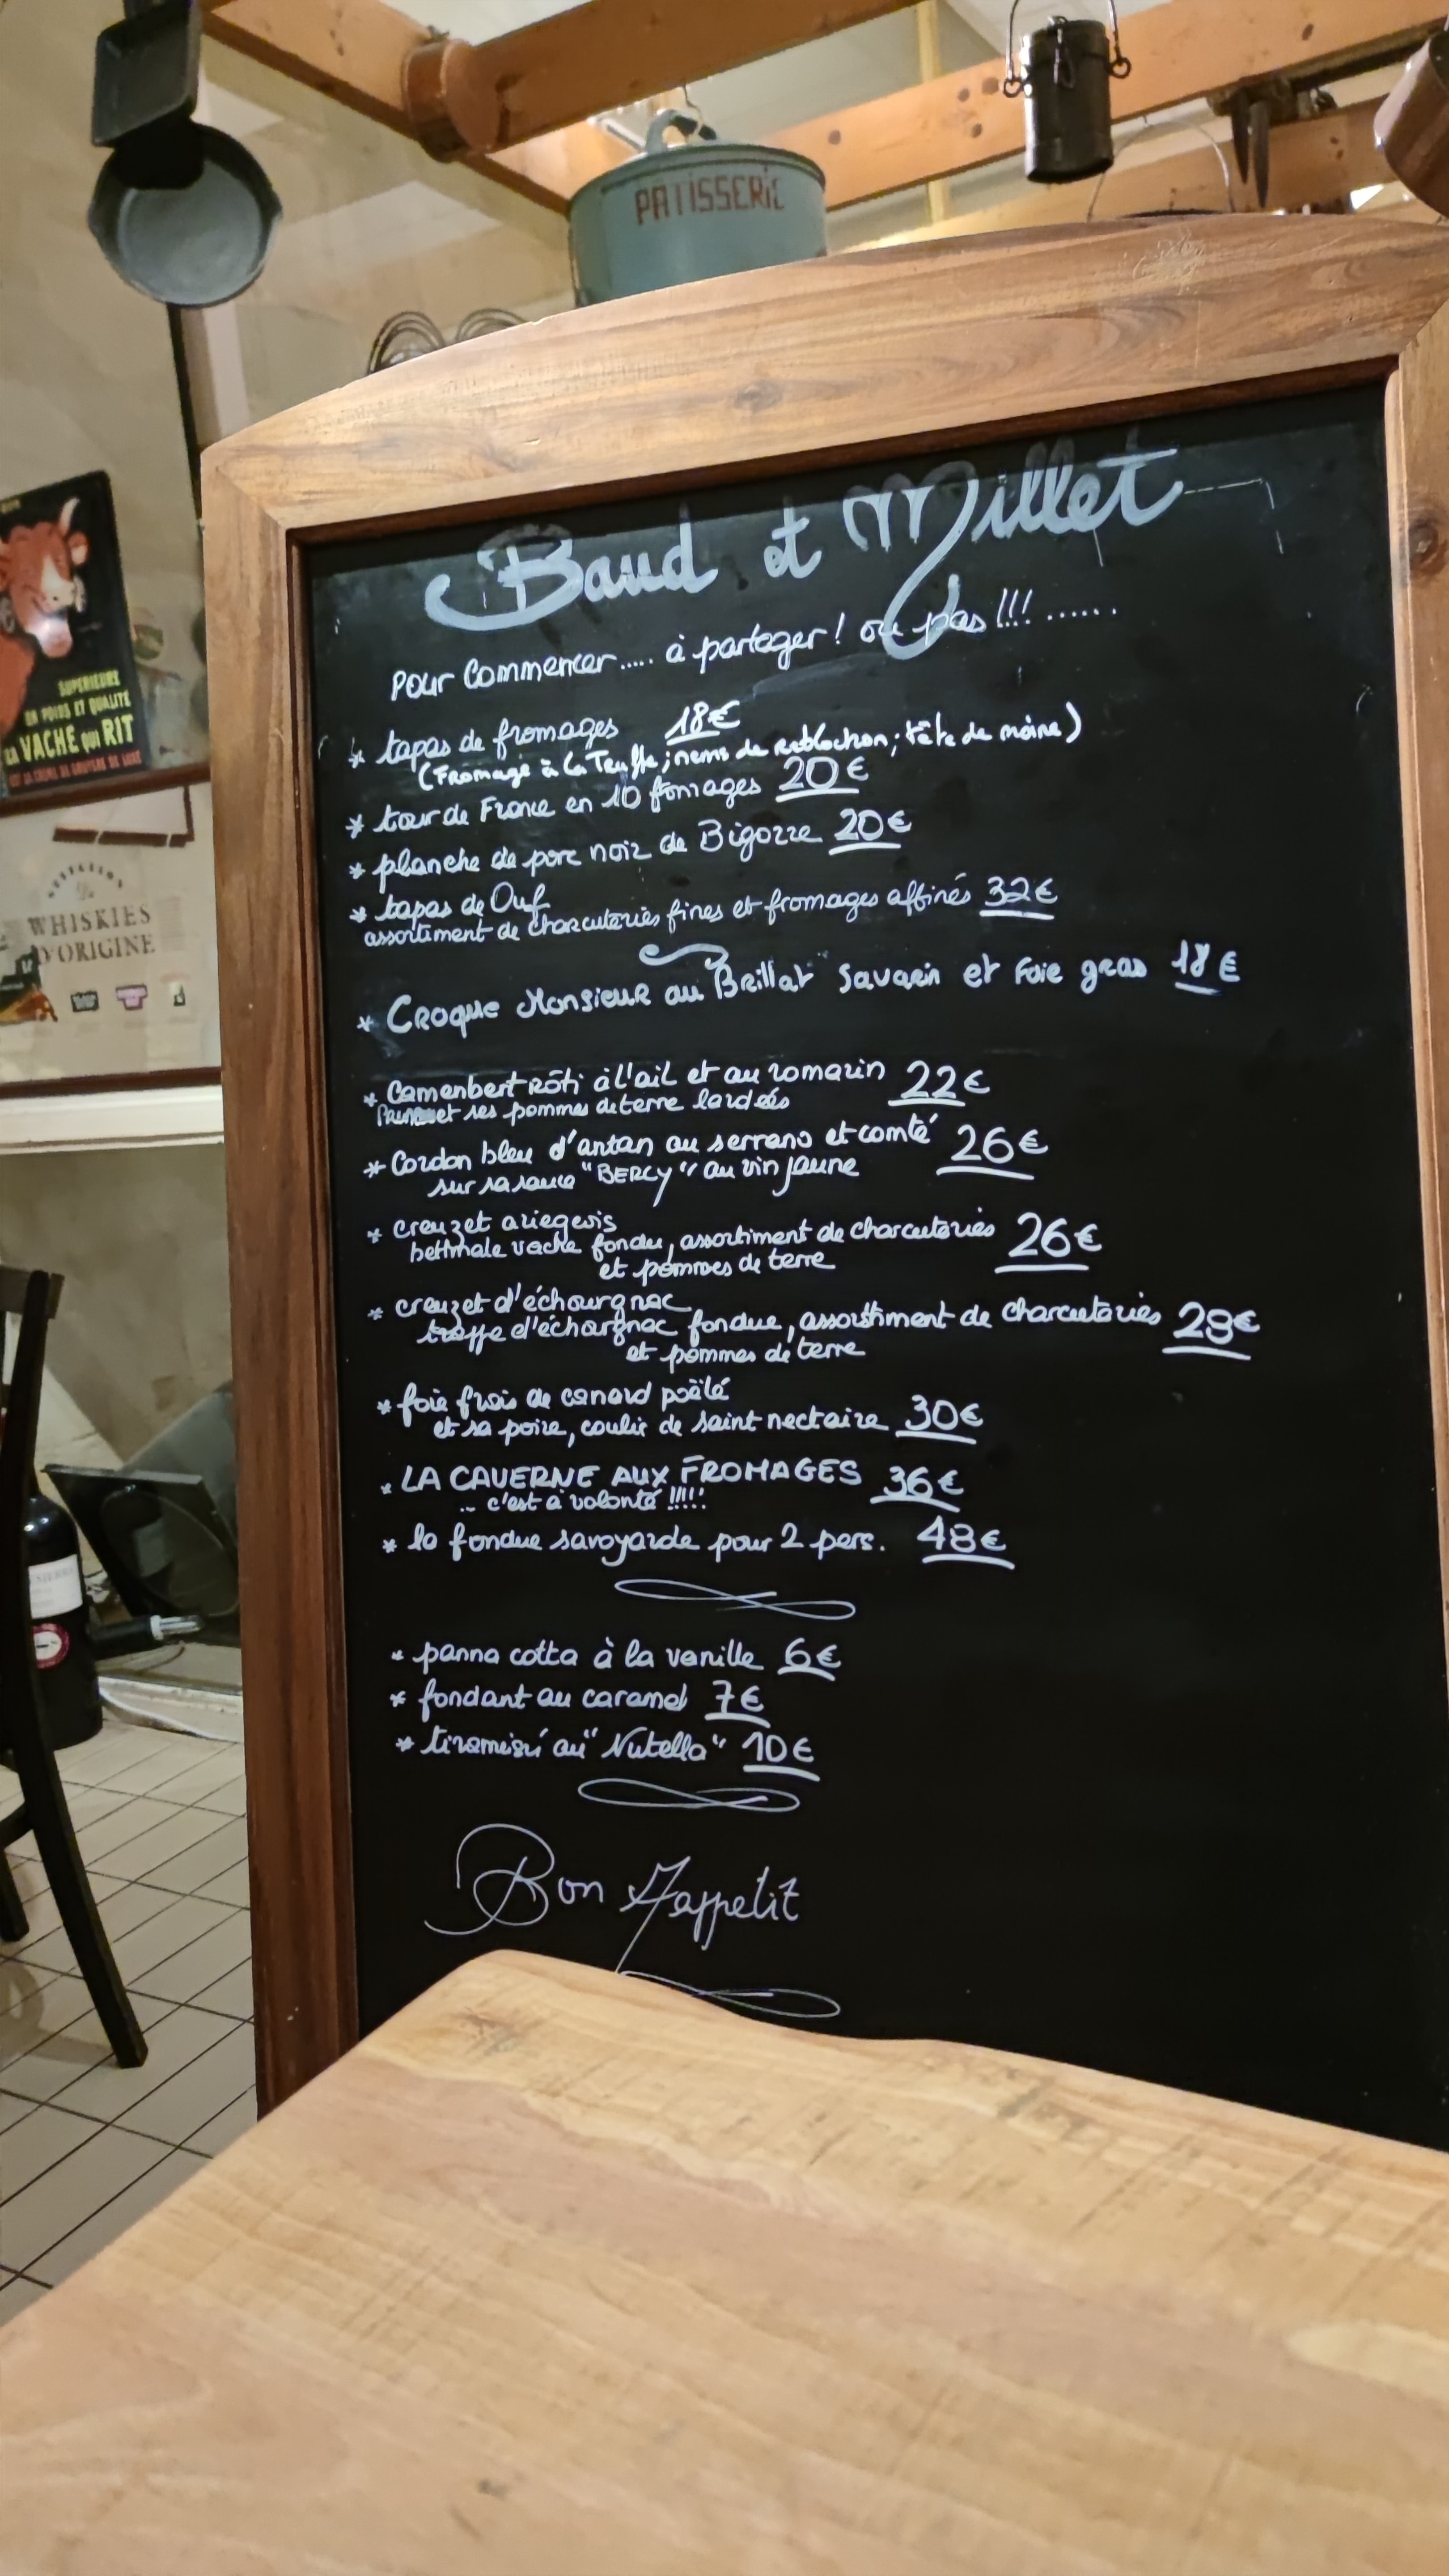 PATISSERIE
Baud et Millet
Pour Commencer..... à partager! ou pas!!! ......
* tapas de fromages 18€
(Fromage à la Truffe; nems de Reblochon; tête de moine)
* tour de France en 10 fromages 20€
* planche de porc noir de Bigorre 20€
* tapas de Ouf
assortiment de charcuteries fines et fromages affinés 32€
* Croque Monsieur au Brillat Savarin et Foie gras 18€
* Camembert Rôti à l'ail et au romarin 22€
et ses pommes de terre lardées
* Cordon bleu d'antan au serrano et comté 26€
sur sa sauce "BERCY" au vin jaune
* creuzet ariegeois
bethmale vache fondu, assortiment de charcuteries 26€
et pommes de terre
* creuzet d'échourgnac
trappe d'échorgnac fondue, assortiment de charcuteries 28€
et pommes de terre
* foie frais de canard poêlé
et sa poire, coulis de saint nectaire 30€
* LA CAVERNE AUX FROMAGES 36€
... c'est à volonté !!!!!
* la fondue savoyarde pour 2 pers. 48€
* panna cotta à la vanille 6€
* fondant au caramel 7€
* tiramisú au "Nutella" 10€
Bon Aappetit
SUPERIEURE
EN POIDS ET QUALITÉ
LA VACHE QUI RIT
WHISKIES
D'ORIGINE